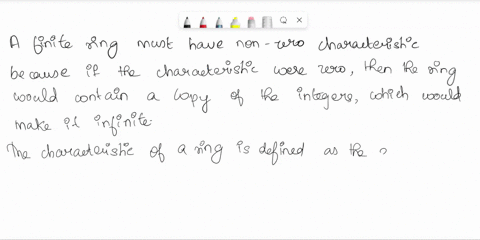 A finite ring must have non-zero characteristic
because if the characteristic were zero, then the ring
would contain a copy of the integers, which would
make it infinite.
The characteristic of a ring is defined as the